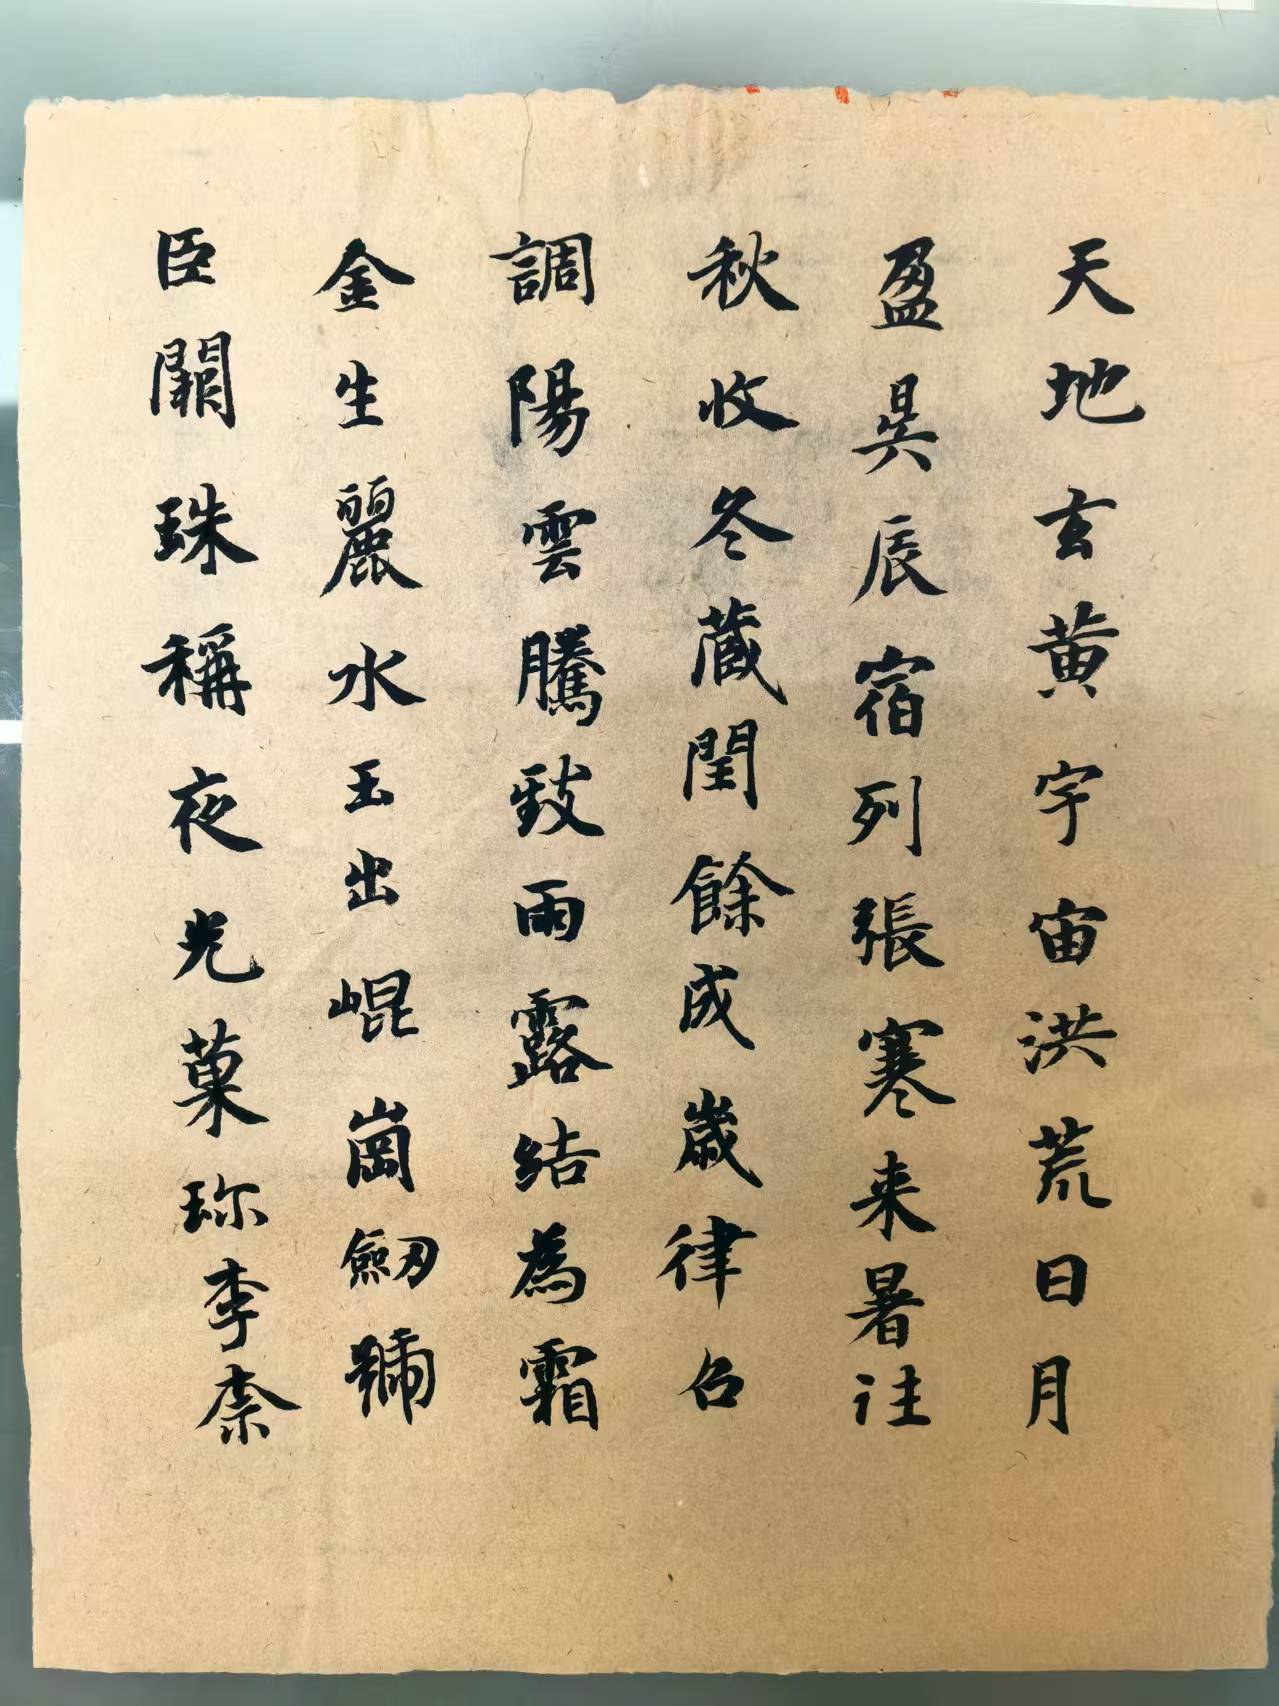 天地玄黄宇宙洪荒日月
盈昃辰宿列張寒来暑往
秋收冬蔵閏餘成歲律吕
調陽雲騰致雨露結為霜
金生麗水玉出崐崗劒號
臣闕珠稱夜光菓珎李柰